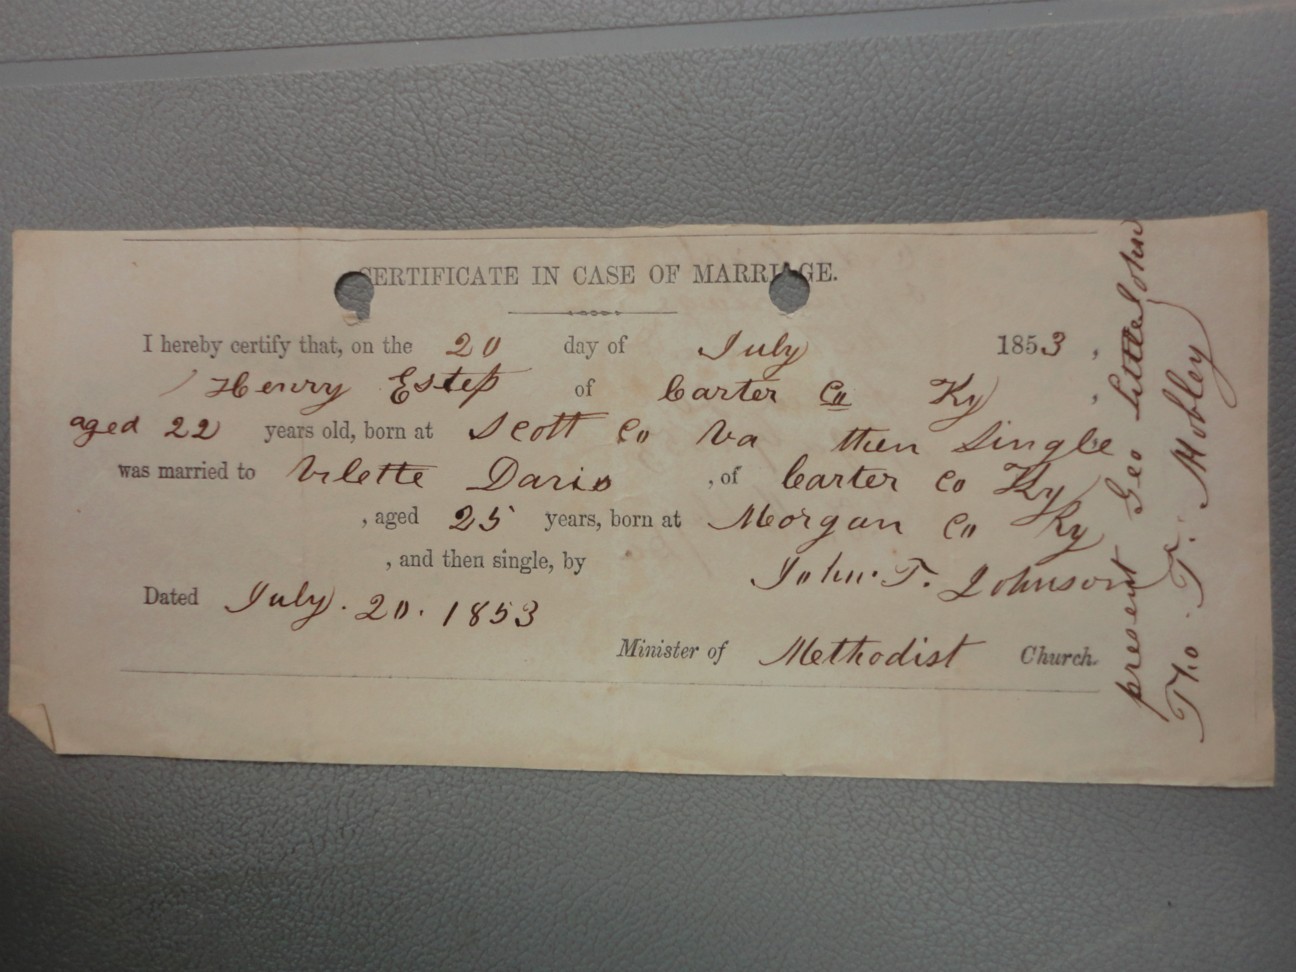 CERTIFICATE IN CASE OF MARRIAGE.
I hereby certify that, on the 20 day of July 1853,
Henry Estep of Carter Co Ky,
aged 22 years old, born at Scott Co Va then Single
was married to Vilette Davis, of Carter Co Ky
, aged 25 years, born at Morgan Co Ky
, and then single, by John. T. Johnson
Dated July. 20. 1853
Minister of Methodist Church.
present Geo Littlejohn
Tho. T. Mobley